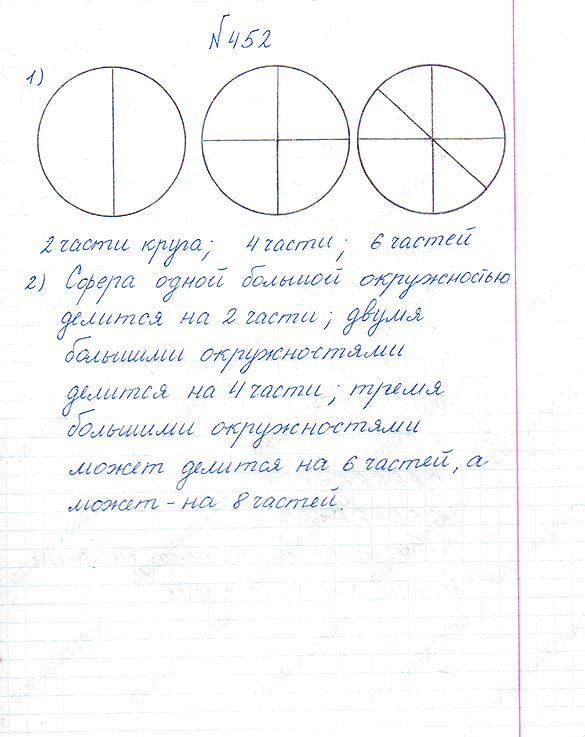 №452
1)
2 части круга; 4 части; 6 частей
2) Сфера одной большой окружностью
делится на 2 части; двумя
большими окружностями
делится на 4 части; тремя
большими окружностями
может делится на 6 частей, а
может - на 8 частей.